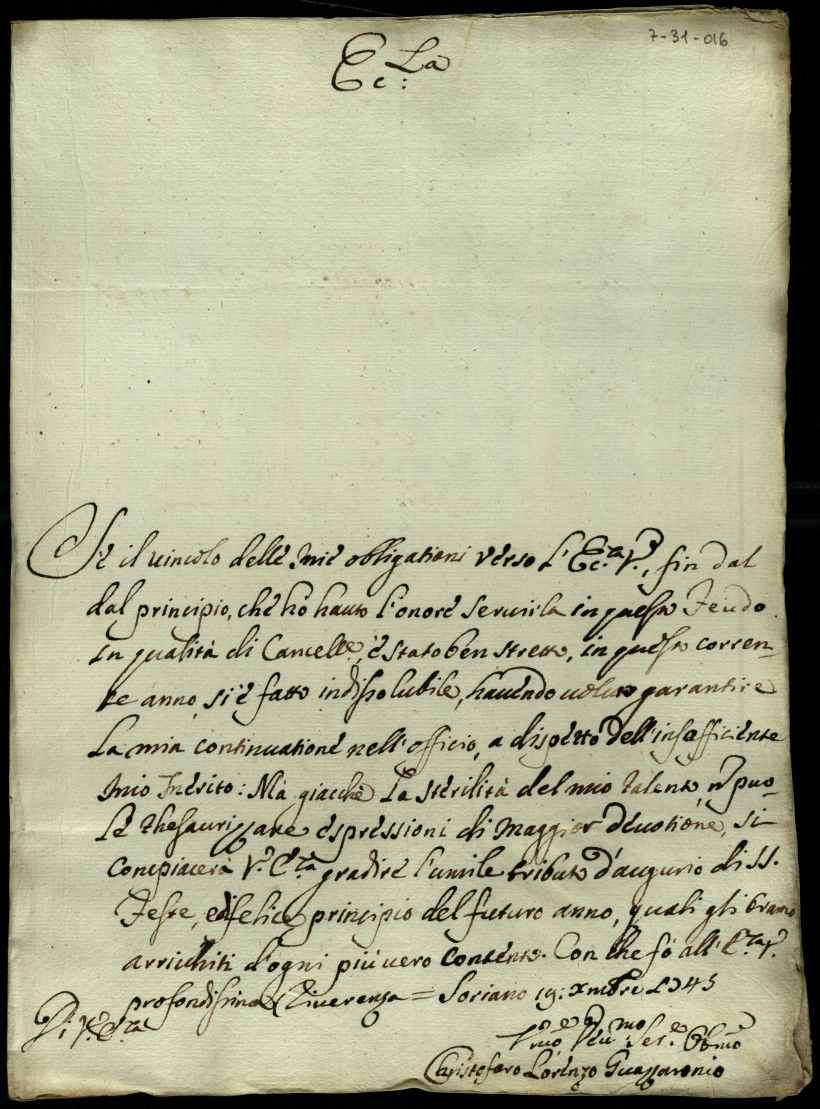 7-31-016
Ec:La
Se il uincolo delle mie obligationi verso l'Ec:za V:, fin dal
dal principio, che hò hauto l'onore seruirla in questo Feudo
in qualità di Cancell:e, è stato ben stretto, in questo corren-
te anno, si è fatto indissolubile, hauendo uoluto garantire
la mia continuatione nell'officio, a dispetto dell'insafficiente
mio Inerito: Mà giacchè la sterilità del mio talento ñ puo-
le thesaurizzare espressioni di maggior deuotione, si
compiacerà V: E:za gradire l'umile tributo d'augurio di SS.
Feste, e di felice principio del futuro anno, quali gli bramo
arricchiti d'ogni più uero contento. Con che fò all'E:za V:
profondissima Riuerenza = Soriano 19: Xmbre 1745
Di V: E:za
Vmo Deu:mo Ser:e Obmo
Christofaro Lorenzo Guazzaronio